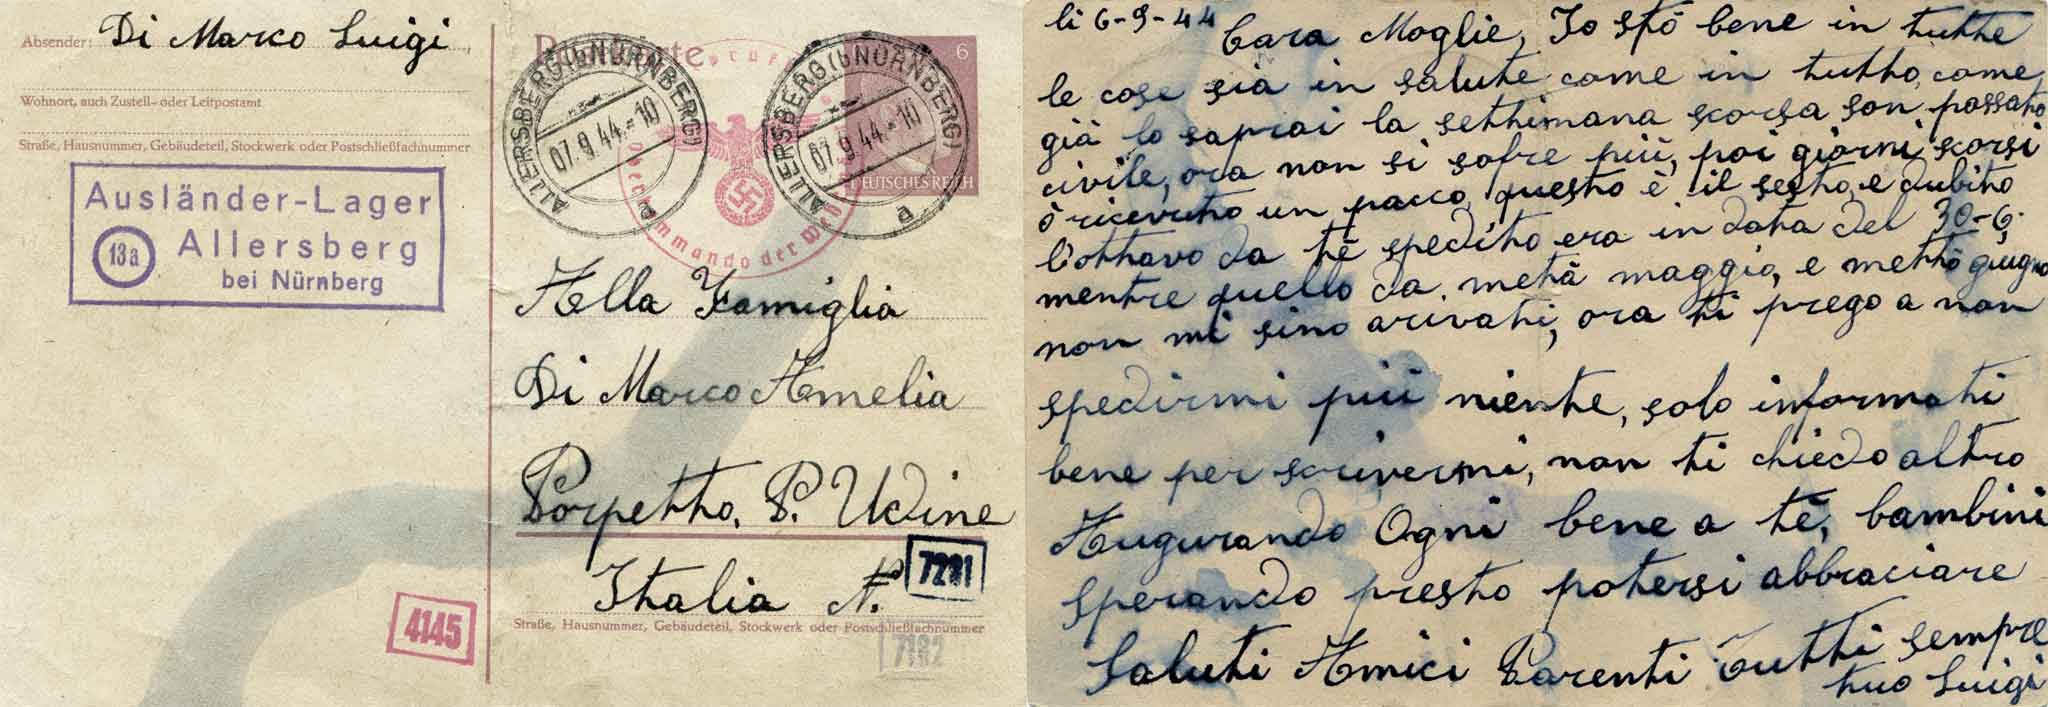 Absender: Di Marco Luigi
Wohnort, auch Zustell- oder Leitpostamt
Straße, Hausnummer, Gebäudeteil, Stockwerk oder Postschließfachnummer
Ausländer-Lager
13a Allersberg
bei Nürnberg
4145
6
DEUTSCHES REICH
ALLERSBERG (b NÜRNBERG)
07.9.44.-10
a
ALLERSBERG (b NÜRNBERG)
07.9.44.-10
a
Alla Famiglia
Di Marco Amelia
Porpetto, P. Udine
Italia N.
7291
Straße, Hausnummer, Gebäudeteil, Stockwerk oder Postschließfachnummer
7182
li 6-9-44
Cara Moglie, Io stò bene in tutte
le cose sia in salute come in tutto, come
già lo saprai la settimana scorsa son passato
civile, ora non si sofre più, poi giorni scorsi
ò ricevuto un pacco, questo è il sesto, e dubito
l'ottavo da tè spedito era in data del 30-6.
mentre quello da metà maggio, e mettà giugno
non mi sino arivati, ora ti prego a non
spedirmi più niente, solo informati
bene per scrivermi, non ti chiedo altro
Augurando Ogni bene a tè, bambini
sperando presto potersi abbraciare
Saluti Amici Parenti Tutti sempre
tuo Luigi